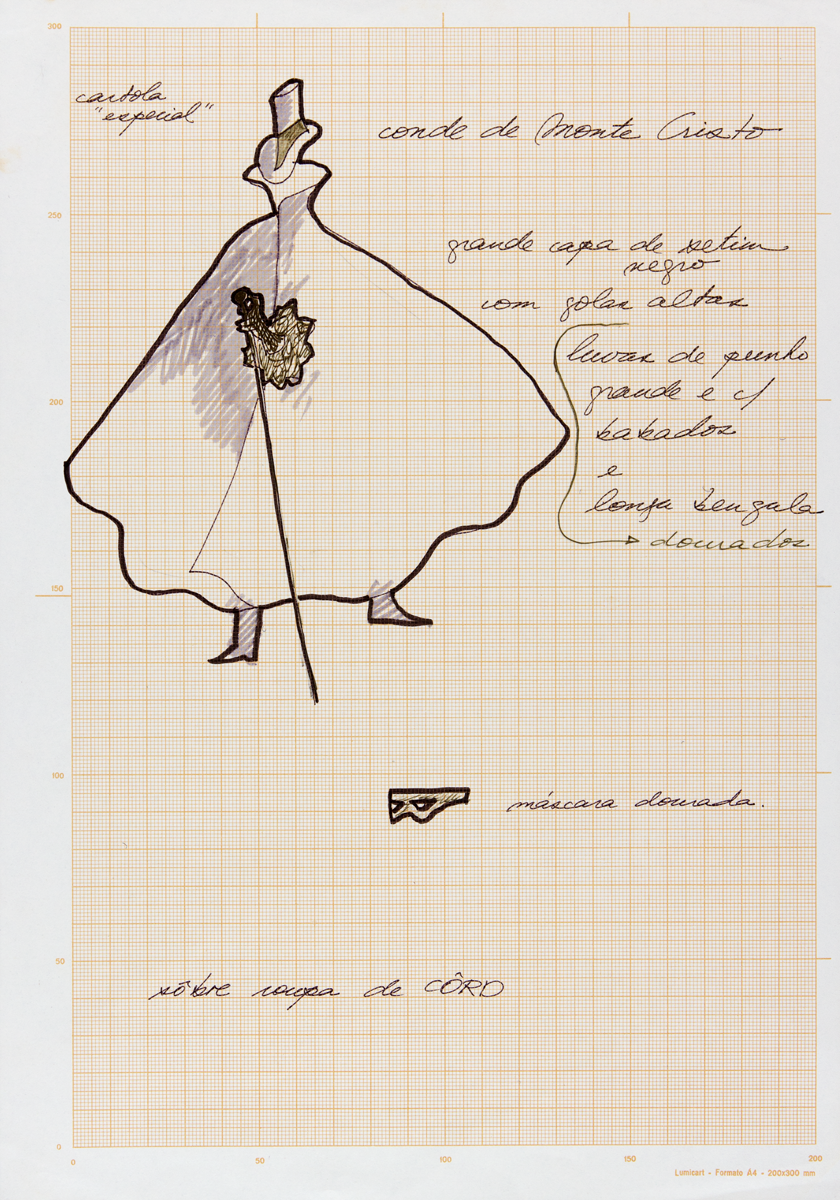 300
cartola
"especial"
conde de Monte Cristo
250
grande capa de setim
negro
com golas altas
luvas de punho
200
grande e c/
babados
e
longa bengala
dourados
150
100
máscara dourada.
50
sôbre roupa de CÔRO
0
0 50 100 150 200
Lumicart - Formato A4 - 200x300 mm